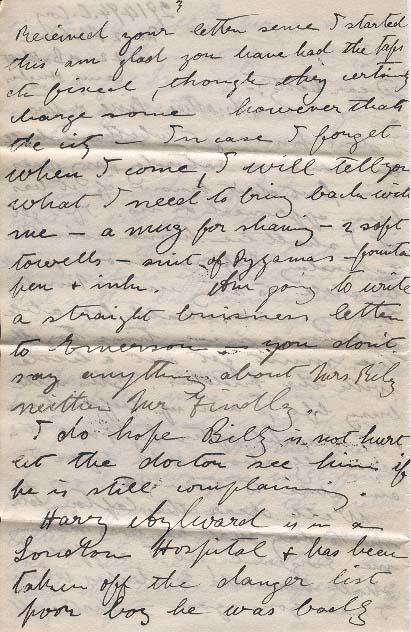 3
Received your letter sense I started
this, am glad you have had the taps
etc fixed, though they certinly
charge some however thats
the city - Incase I forget
when I come, I will tell you
what I need to bring back with
me - a mug for shaving - 2 soft
towells - suit of Pygamas - fountain
pen & ink. Am going to write
a straight business letter
to Emerson - you don't
say anything about Mrs Rily
neither Mr Findly.
I do hope Billy is not hurt
let the doctor see him if
he is still complaining.
Harry Aylward is in a
London Hospital & has been
taken off the danger list
poor boy he was badly